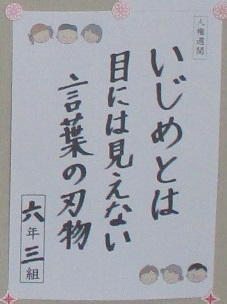 人権週間
いじめとは
目には見えない
言葉の刃物
六年三組